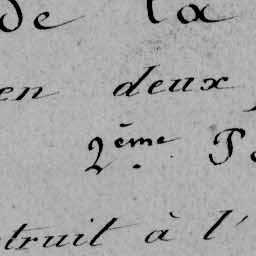 de la
en deux
2ème
truit à l'